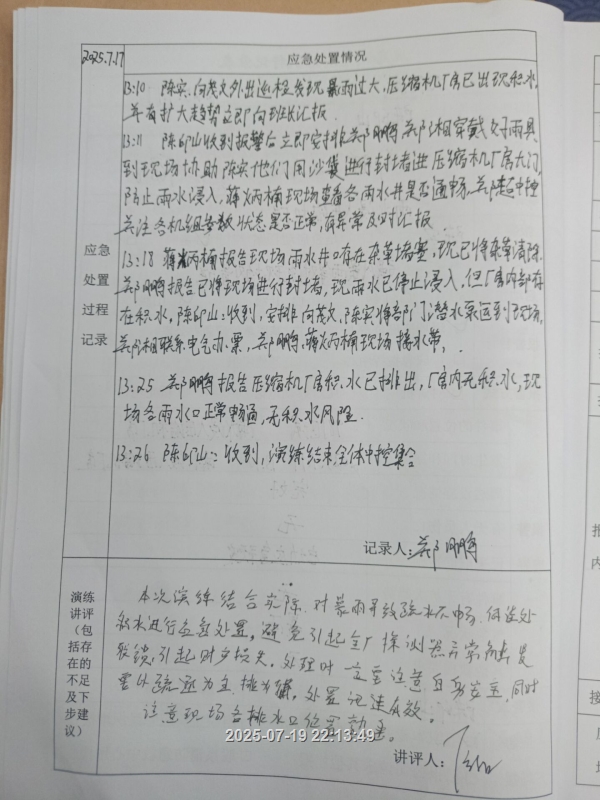 2025.7.17
应急处置情况
应急处置过程记录
13:10 陈实、向茂文外出巡检发现暴雨过大,压缩机厂房已出现积水,
并有扩大趋势立即向班长汇报.
13:11 陈印山收到报警后立即安排郑鹏 相穿戴好雨具
到现场协助陈实他们用沙袋进行封堵进压缩机厂房大门,
防止雨水浸入,蒋炳楠现场查看各雨水井是否通畅, 中控
关注各机组参数、状态是否正常,有异常及时汇报.
13:18 蒋炳楠报告现场雨水井口存在杂草堵塞,现已将杂草清除.
鹏报告已将现场进行封堵,现雨水已停止浸入,但厂房内部存
在积水,陈印山:收到,安排向茂文、陈实将部门潜水泵运到现场,
相联系电气办票, 鹏、蒋炳楠现场接水带。
13:25 鹏报告压缩机厂房积水已排出,厂房内无积水,现
场各雨水口正常畅通,无积水风险.
13:26 陈印山:收到,演练结束全体中控集合
记录人: 鹏
演练讲评(包括存在的不足及下步建议)
本次演练结合实际,对暴雨导致疏水不畅、
积水进行应急处置,避免引起全厂探测器异常
联锁,引起财产损失。处理时一定要注意自身安全,同时
要以疏通为主,排为辅,处置迅速有效。
注意现场各排水口位置
2025-07-19 22:13:49
讲评人: